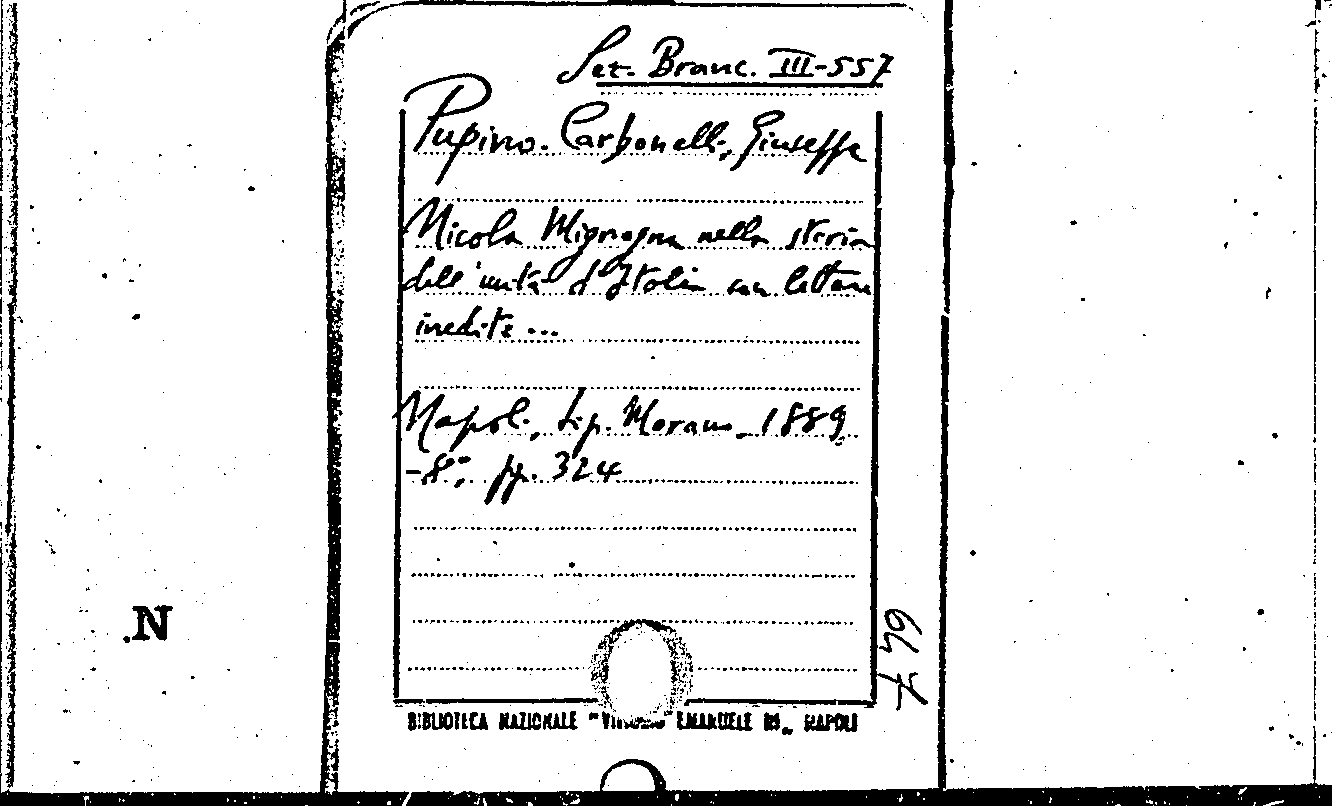 Sez. Branc. III-557
Pupino-Carbonelli, Giuseppe
Nicola Mignogna nella storia
dell'unità d'Italia con lettere
inedite...
Napoli, tip. Morano, 1889
-8°, pp. 324
.N
BIBLIOTECA NAZIONALE "VITTORIO EMANUELE III„ NAPOLI